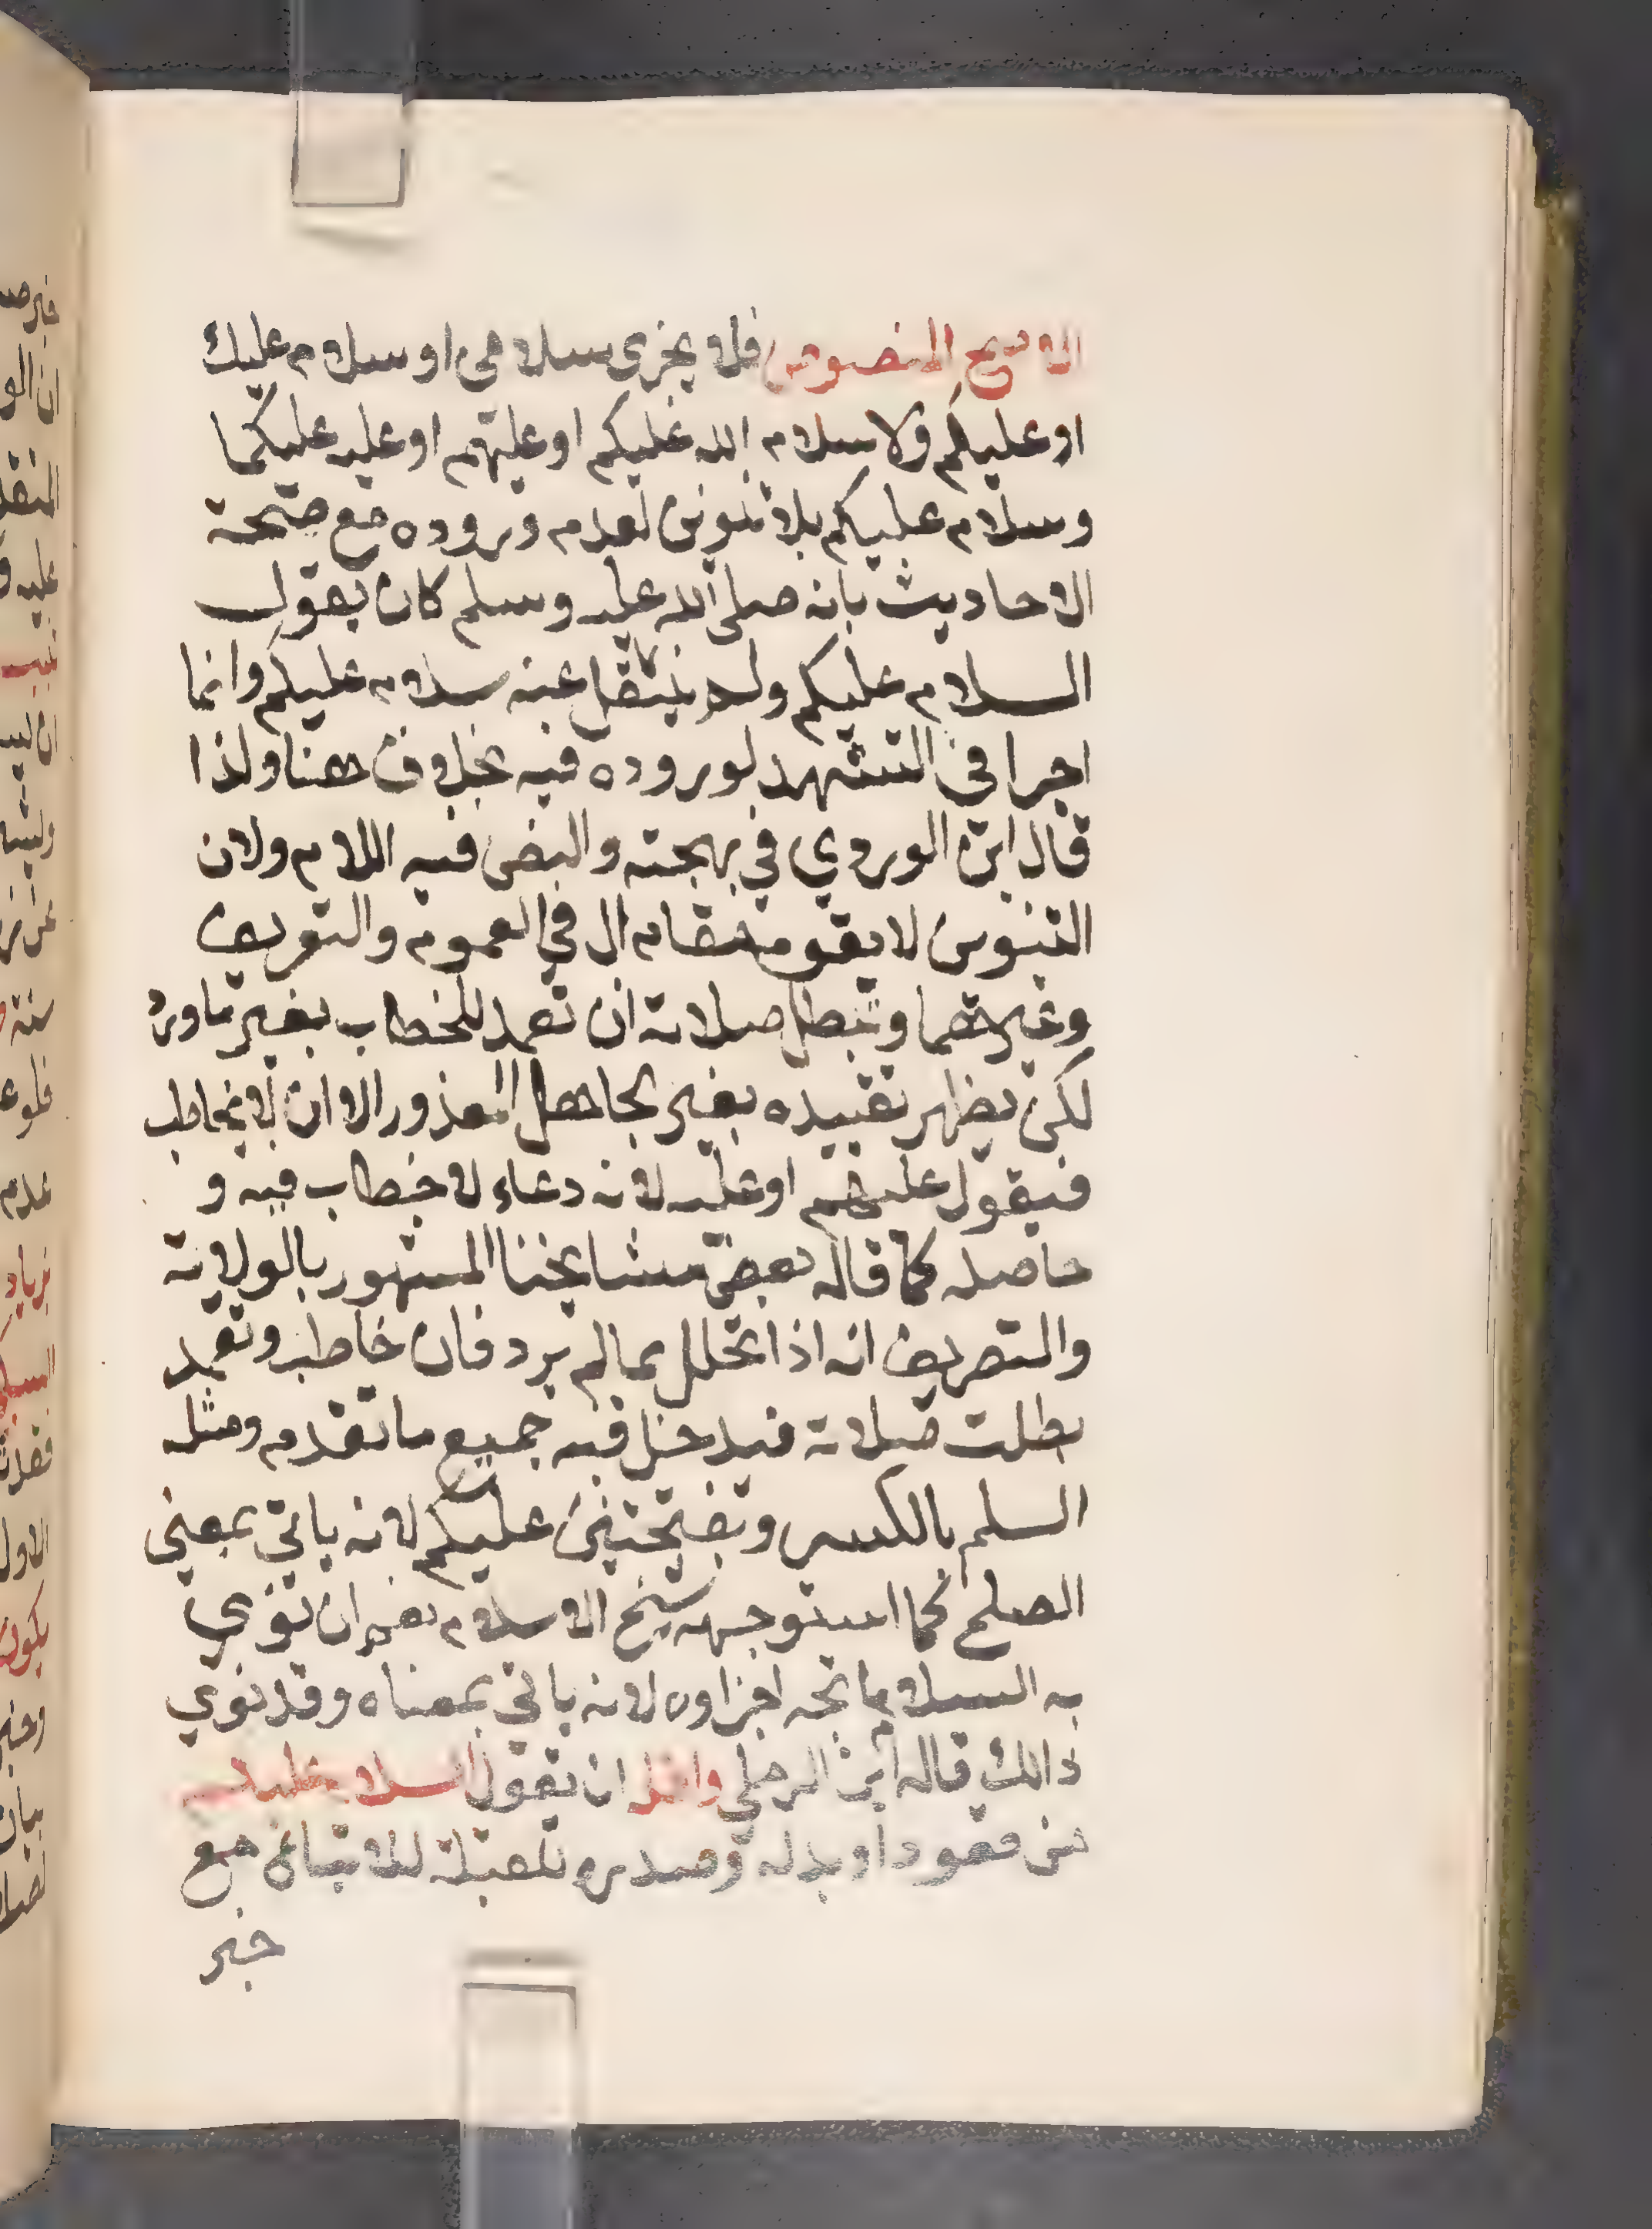 الاصح المنصوص فلا يجزي سلامي او سلام عليك
او عليكم ولا سلام الله عليكم او عليهم او عليه عليكما
وسلام عليكم بلا تنوين لعدم وروده مع صحة
الاحاديث بانه صلى الله عليه وسلم كان يقول
السلام عليكم ولم ينقل عنه سلام عليكم وانما
اجزا في التشهد لوروده فيه بخلاف هنا ولذا
قال ابن الوردي في بهجته والنص فيه اللام ولان
التنوين لا يقوم مقام ال في العموم والتعريف
وغيرهما وتبطل صلاته ان تعمد للخطاب بغير ما ورد
لكن يظهر تقييده بغير الجاهل المعذور الا ان لا يخاطب
فيقول عليهم او عليه لانه دعاء لا خطاب فيه و
حاصله كما قاله بعض مشايخنا المشهور بالولاية
والتصريف انه اذا تحلل بما لم يرد فان خاطب وتعمد
بطلت صلاته فيدخل فيه جميع ما تقدم ومثله
السلم بالكسر وبفتحتين عليكم لانه ياتي بمعنى
الصلح كما استوجهه شيخ الاسلام نعم ان نوى
به السلام اتجه اجزاوه لانه ياتي بمعناه وقد نوي
ذالك قاله ابن الرملي واقله ان يقول السلام عليكم
من قعود او بدله وصدره للقبلة للاتباع مع
خبر